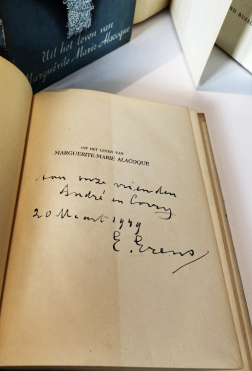 Uit het leven van
Marguérite Marie Alacoque
UIT HET LEVEN VAN
MARGUERITE-MARIE ALACOQUE
aan onze vrienden
André en Corry
20 Maart 1949
E. Erens